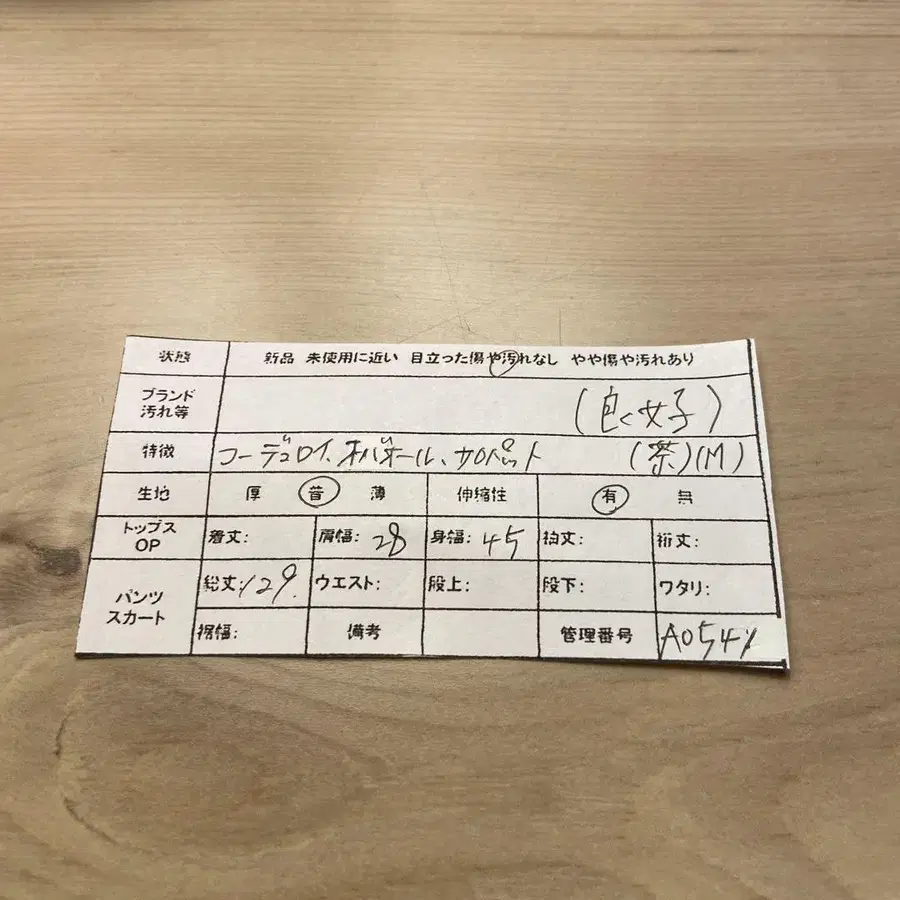 状態 新品 未使用に近い 目立った傷や汚れなし やや傷や汚れあり
ブランド
汚れ等 (良く女子)
特徴 コーデュロイ、オバオール、サロペット (茶)(M)
生地 厚 普 薄 伸縮性 有 無
トップス
OP 着丈: 肩幅: 28 身幅: 45 裄丈:
パンツ
スカート 総丈: 129. ウエスト: 股上: 股下: ワタリ:
裾幅: 備考 管理番号